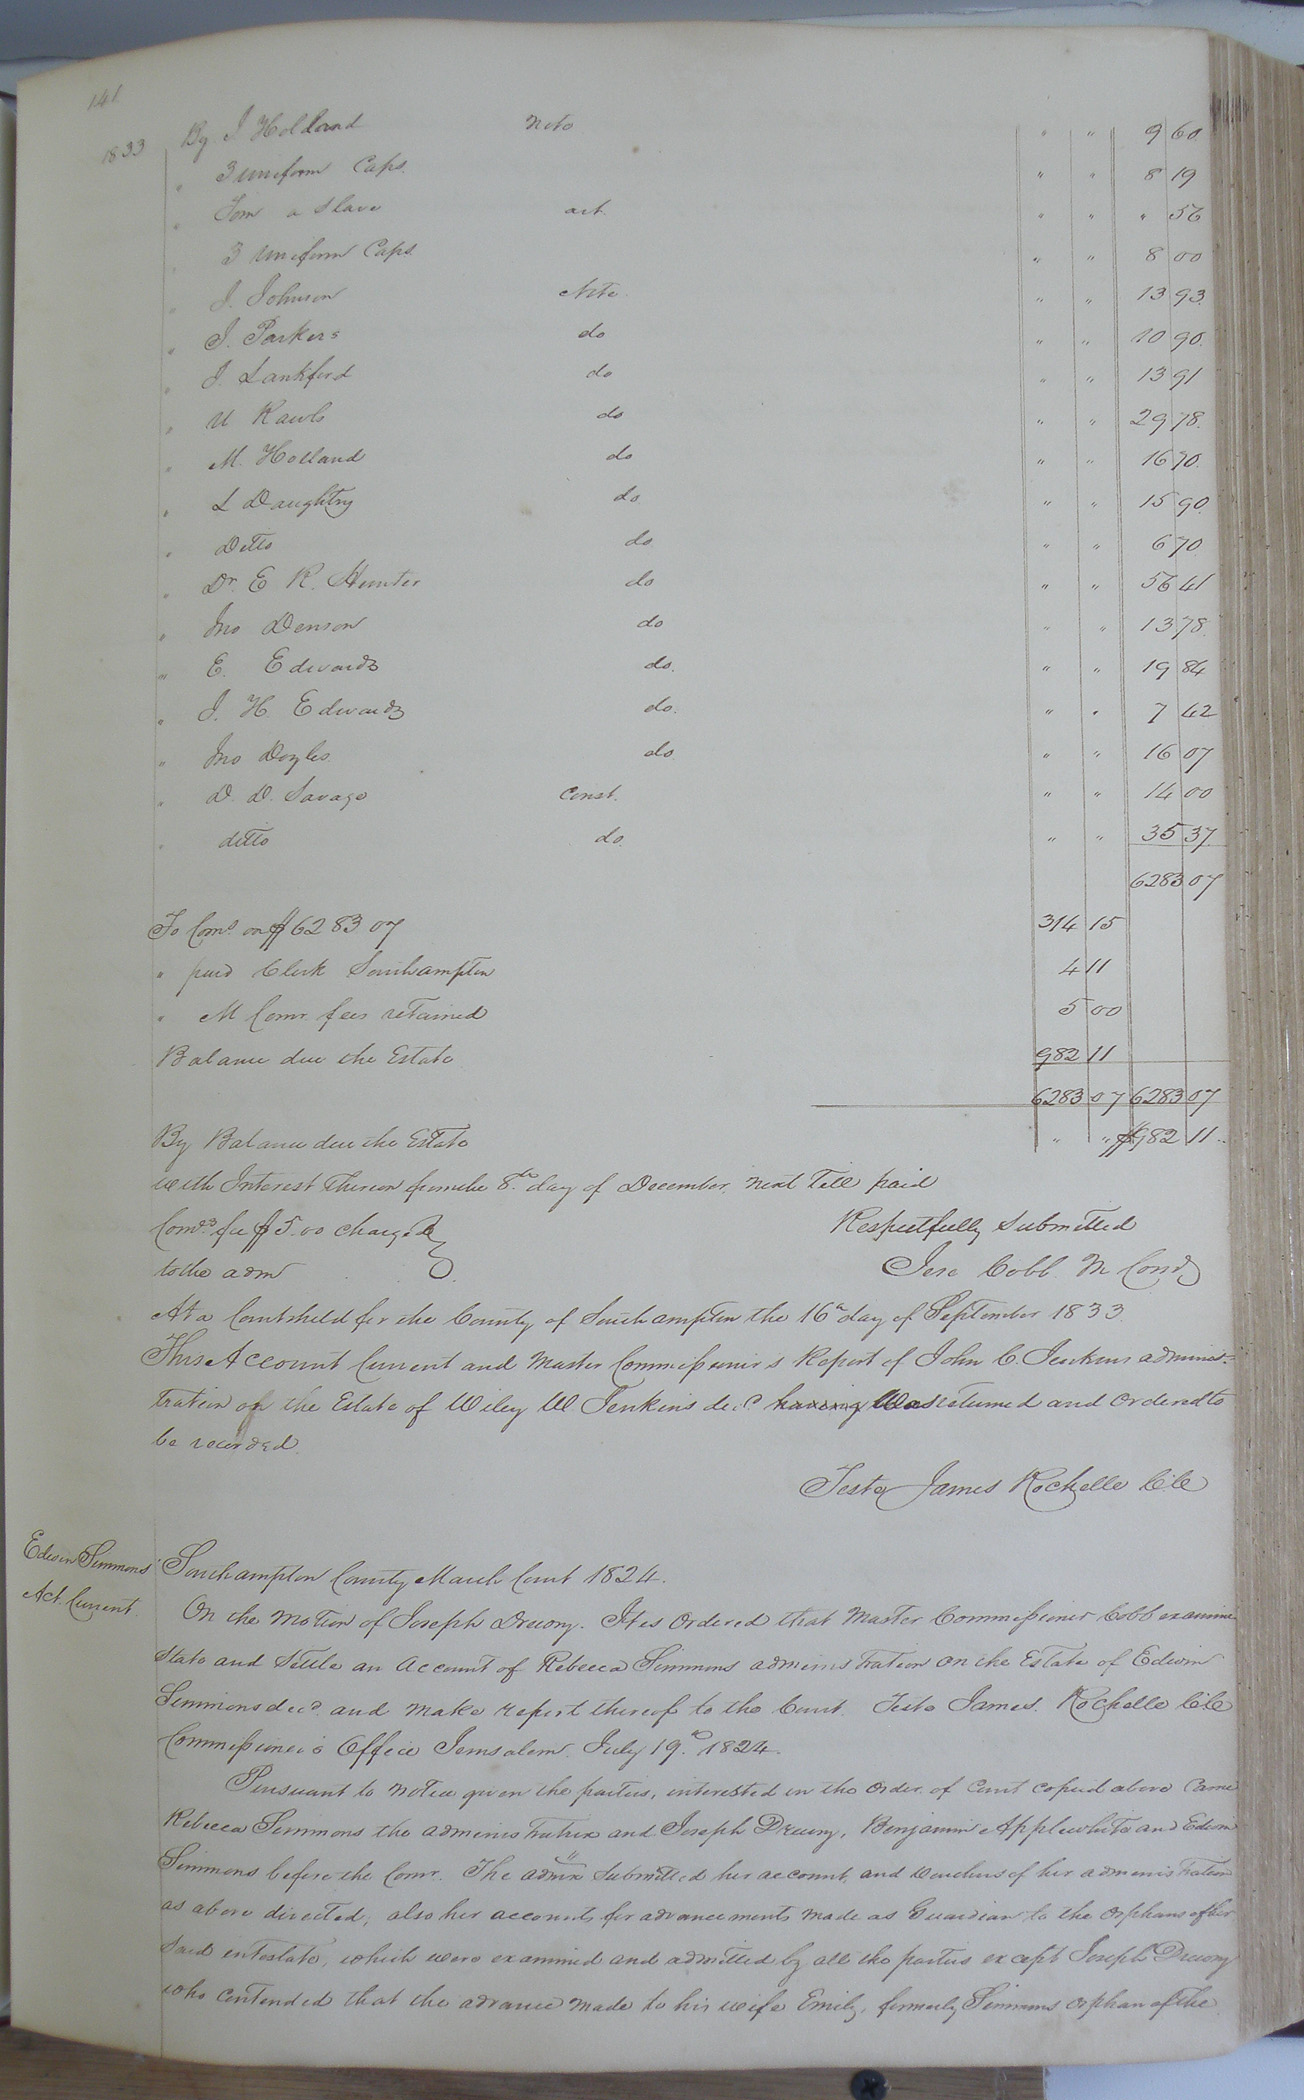 141
1833 By J Holland Note " " 9 60
" 3 uniform Caps. " " 8 19
" Tom a Slave act. " " " 56
" 3 Uniform Caps " " 8 00
" J. Johnson Note " " 13 93
" J. Parkers do " " 10 90
" J. Lankford do " " 13 91
" U Rawls do " " 29 78
" M. Holland do " " 16 70
" L Daughtry do " " 15 90
" Ditto do " " 6 70
" Dr. E R. Hunter do " " 56 41
" Jno Denson do " " 13 78
" E. Edwards do. " " 19 84
" J. H Edwards do. " " 7 42
" Jno Doyles do. " " 16 07
" D. D. Savage Const. " " 14 00
" ditto do. " " 35 37
6283 07
To Coms on $6283 07 314 15
" paid Clerk Southampton 4 11
" M Comr. fees retained 5 00
Balance due the Estate 982 11
6283 07 6283 07
By Balance due the Estate " " $982 11
with Interest thereon from the 8th day of December next till paid
Comrs. fee $5.00 charged Respectfully submitted
to the adm Jese Cobb M Comr
At a Court held for the County of Southampton the 16th day of September 1833.
This Account Current and Master Commissioner's Report of John C. Jenkins adminis-
tration of the Estate of Wiley W Jenkins decd having Was returned and Ordered to
be recorded.
Teste James Rochelle C.C
Edwin Simmons Southampton County March Court 1824.
Act. Current. On the Motion of Joseph Drewry. It is Ordered that Master Commissioner Cobb examine
State and Settle an Account of Rebecca Simmons administration on the Estate of Edwin
Simmons decd. and make report thereof to the Court. Teste James Rochelle C.C
Commissioner's Office Jerusalem July 19th 1824.
Pursuant to notice given the parties, interested in the order of Court copied above Came
Rebecca Simmons the administratrix and Joseph Drewry, Benjamin Applewhite and Edwin
Simmons before the Comr. The admx submitted her account, and vouchers of her administration
as above directed, also her accounts for advancements made as Guardian to the orphans of her
said intestate, which were examined and admitted by all the parties except Joseph Drewry
who contended that the advance made to his wife Emily, formerly Simmons orphan of the